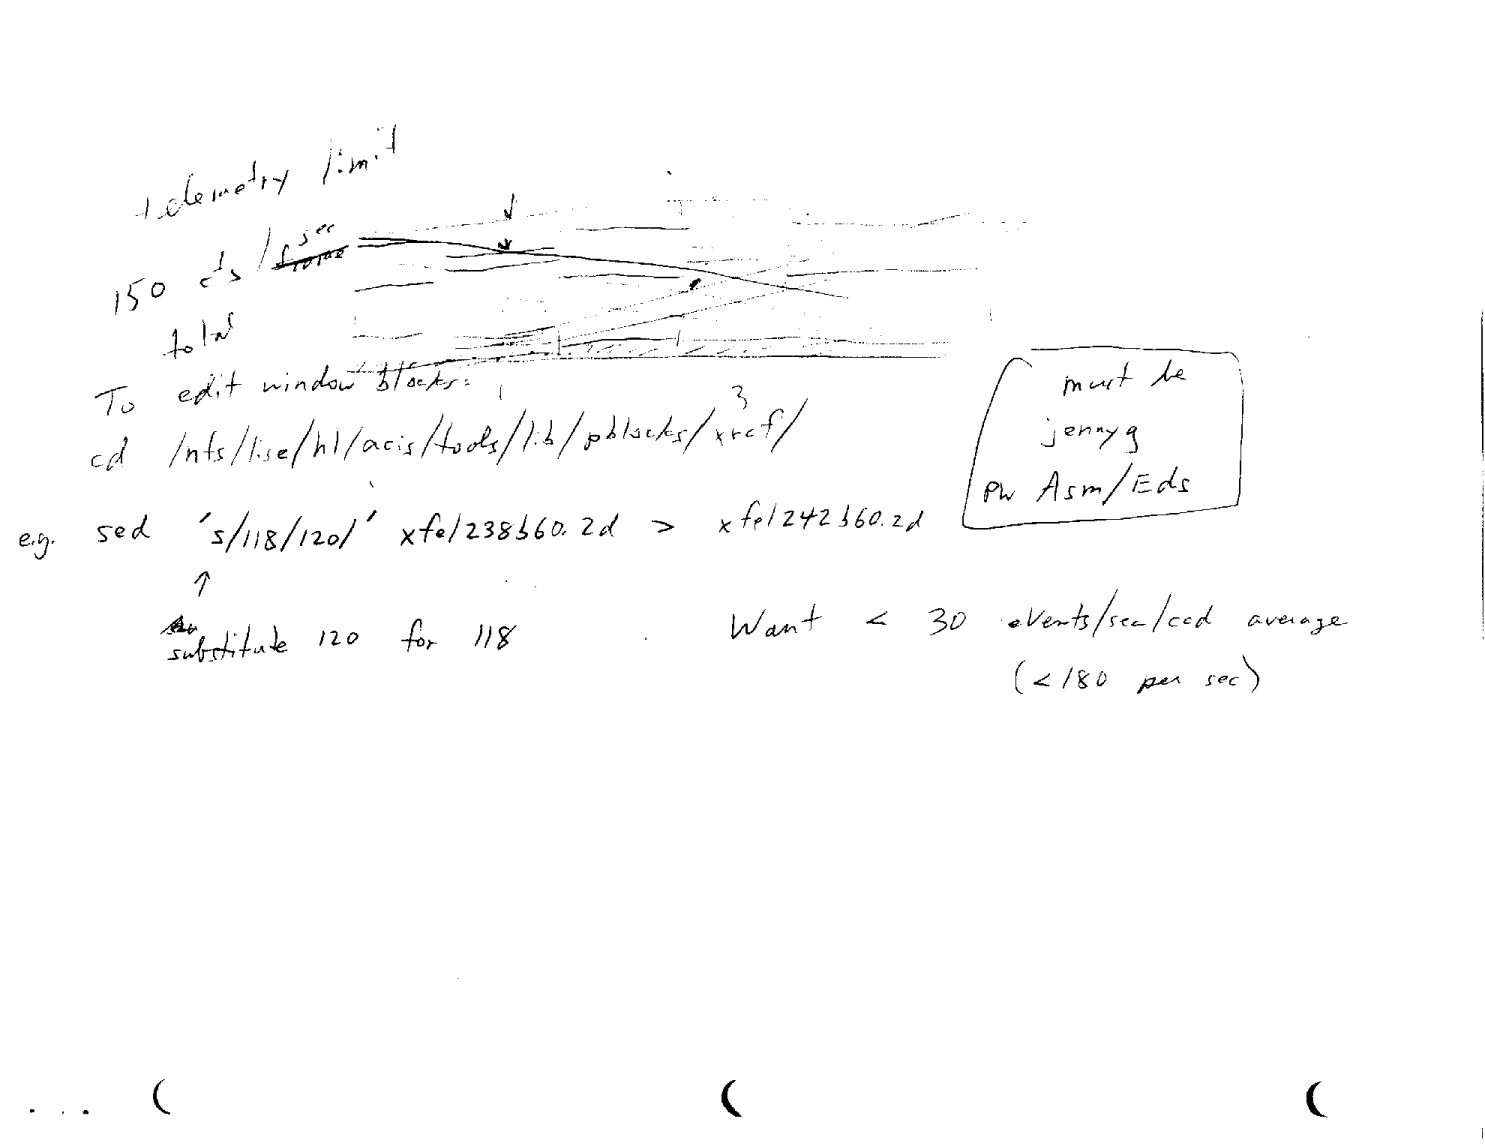 telemetry limit
150 cts / frame sec
total
To edit window blocks:
cd /nfs/lise/h1/acis/tools/lib/pblocks/xrcf/
3
must be
jennyg
pw Asm/Eds
e.g. sed 's/118/120/' xfe1238b60.2d > xfe1242b60.2d
↑
substitute 120 for 118
Want < 30 events/sec/ccd average
(<180 per sec)